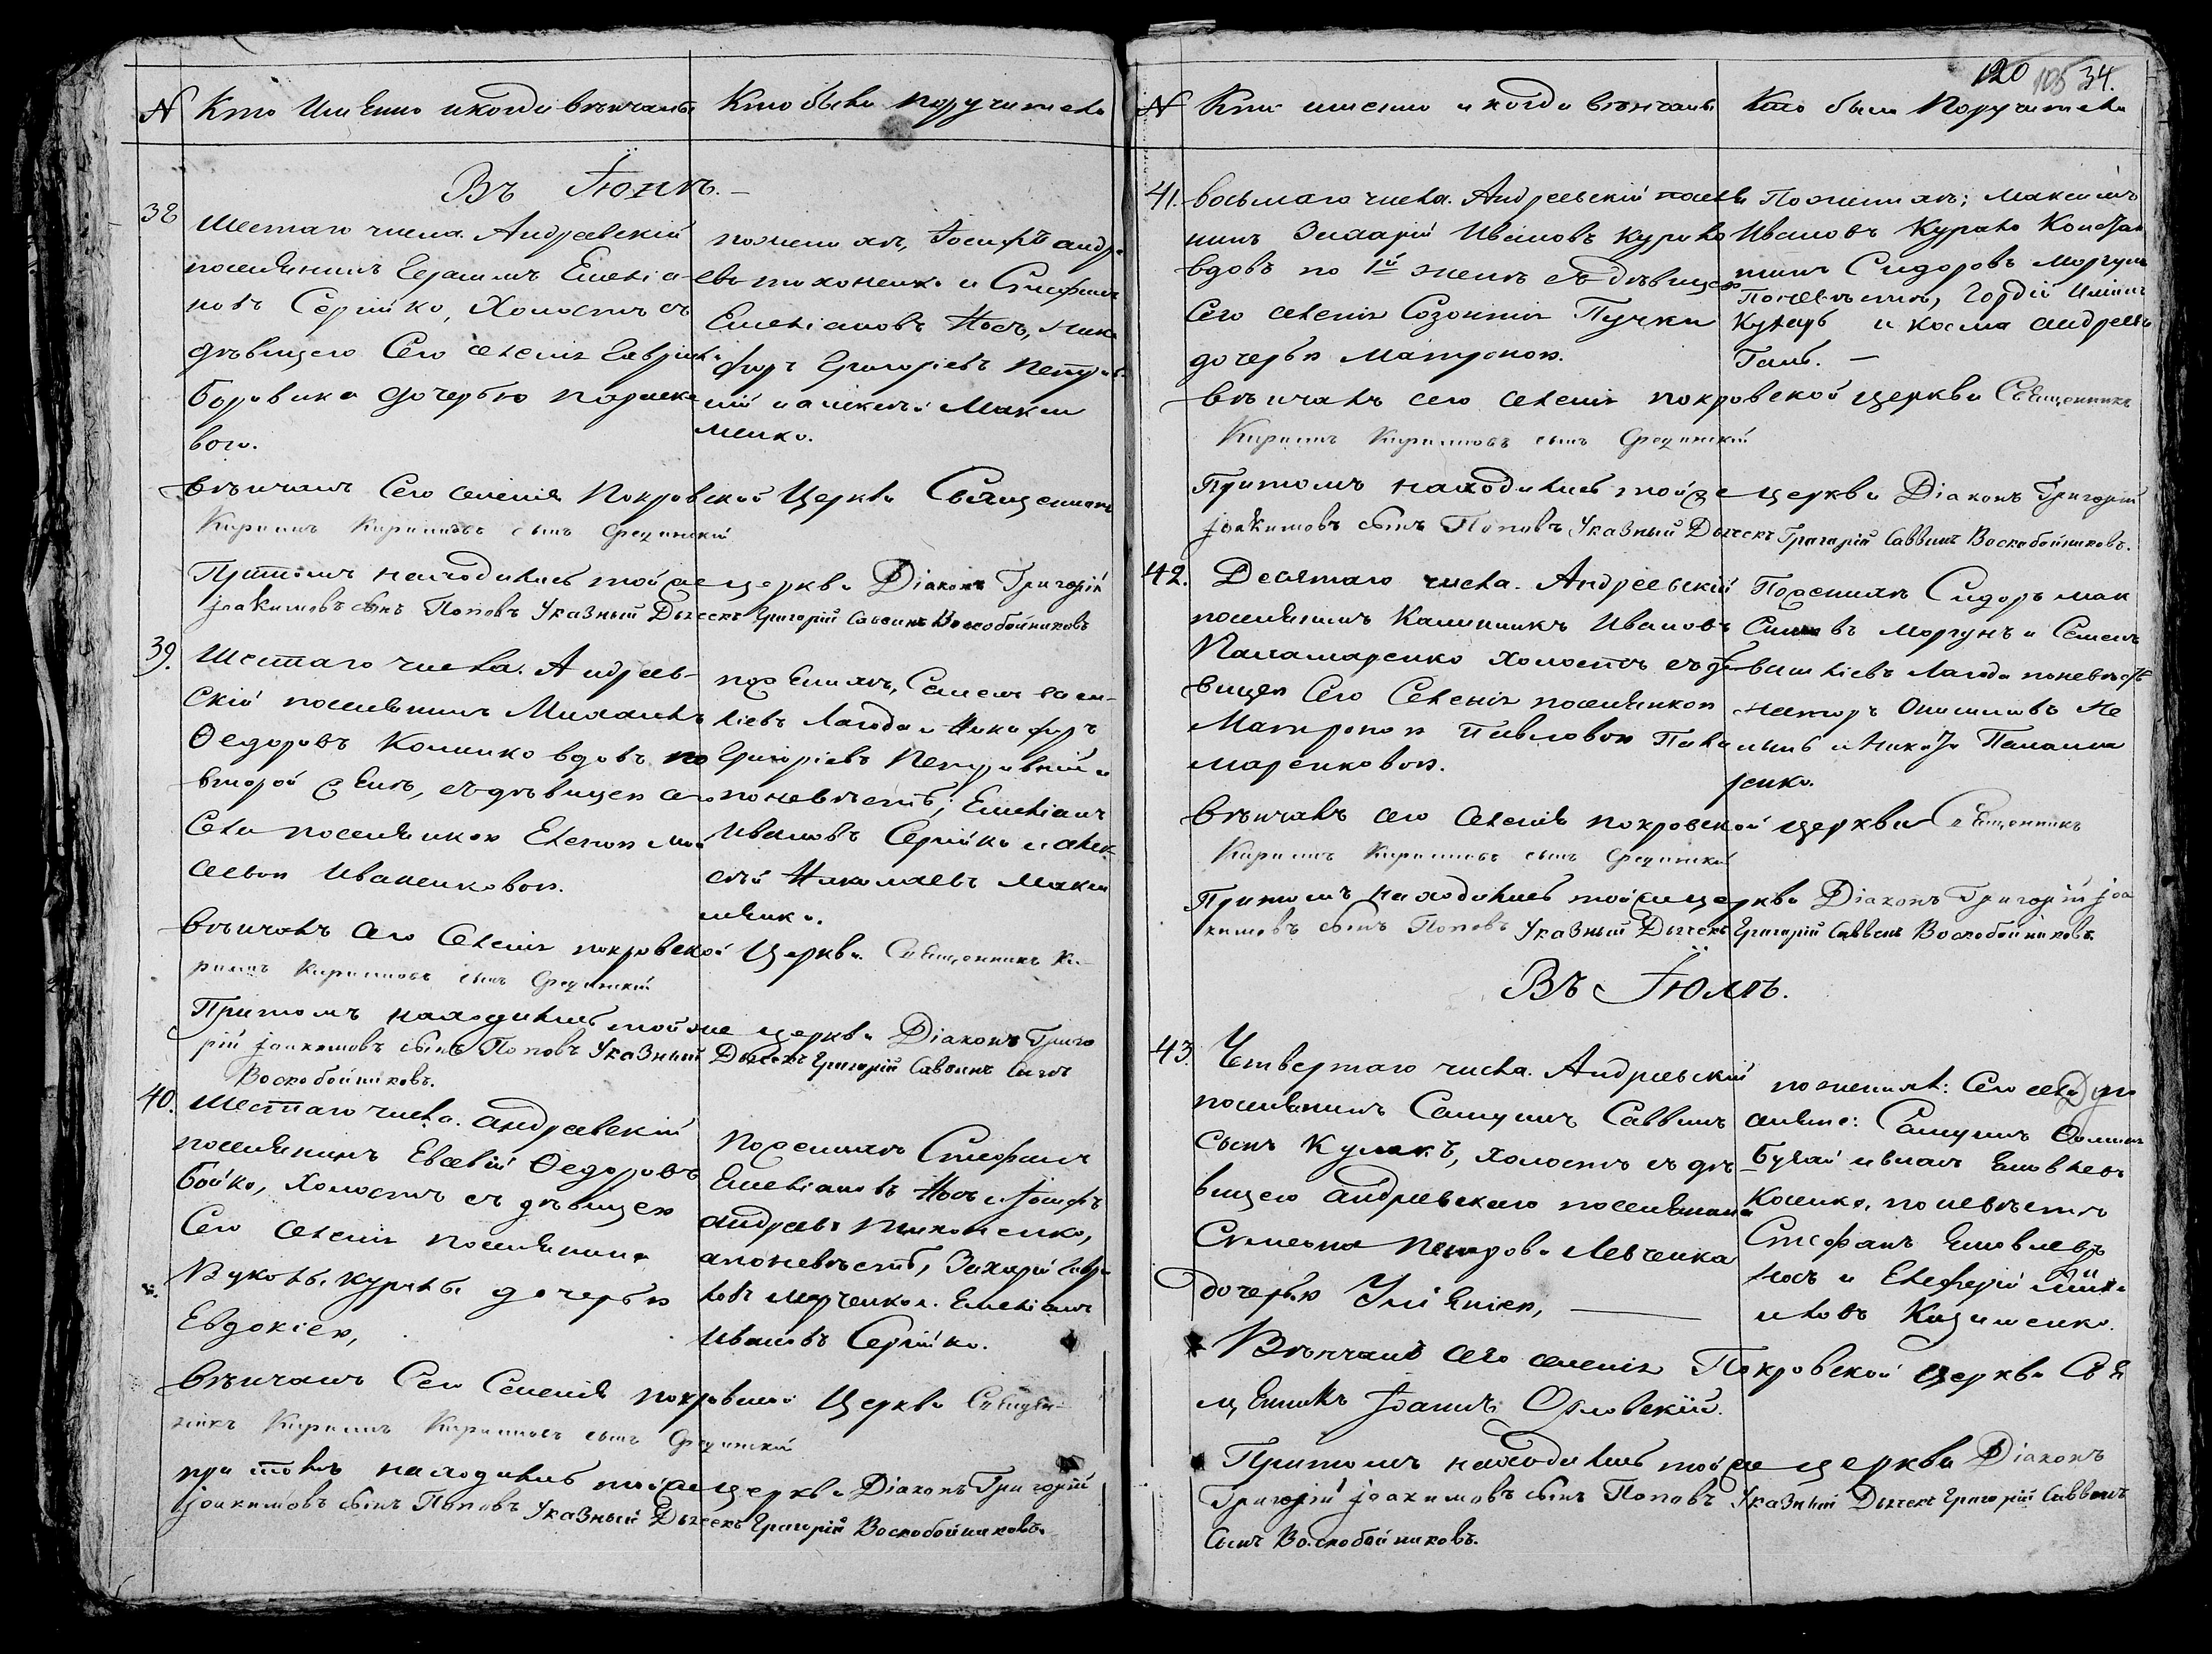 N Кто Именно и когда вѣнчаны Кто были поручители
Въ Іюнѣ. —
38
Шестаго числа Андреевскій
поселянинъ Герасимъ Емелiя-
новъ Сергійко, Холостъ съ
дѣвицею Сего селенія Гаврiила
Боровика дочерью параске
вою.
по женихѣ, Іосифъ андре
евъ тихоненко и Стефанъ
Емеліановъ Носъ, Ники
форъ Григоріевъ Петров
ній и алексѣй Макси
менко.
вѣнчалъ Сего селенія Покровской Церкви Священникъ
Кириллъ Кирилловъ сынъ Срединскій
Притомъ находились тойже церкви Діаконъ Григорій
Іоакимовъ сынъ Поповъ Указный Дьячекъ Григорій Саввинъ Воскобойниковъ
39. Шестаго числа. Андреев-
скій поселянинъ Михаилъ
Ѳедоровъ Комишко вдовъ по
второй женѣ, съ дѣвицею се
села поселянкою Еленою Мои
сеевою Иваненковою.
по женихѣ, Семенъ васи-
ліевъ Лагода и Никифоръ
Григоріевъ Петровній и
по невѣстѣ; Емеліанъ
Ивановъ Сергійко и алек
сѣй Николаевъ Макси
менко.
вѣнчалъ Сего Селенія покровской Церкви. Священникъ Ки-
риллъ Кирилловъ сынъ Срединскій
Притомъ находились той же церкви Діаконъ Григо
рій Іоакимовъ сынъ Поповъ Указный Дьячекъ Григорій Саввинъ сынъ
Воскобойниковъ.
40. Шестаго числа. андреевскій
поселянинъ Евсевій Ѳедоровъ
Бойко, Холостъ съ дѣвицею
Сего Селенія поселянина
Вуколы Курилы дочерью
Евдокіею,
По женихѣ Стефанъ
Емеліановъ Носъ и Іосифъ
андреевъ тихоненко,
а по невѣстѣ, Захарій
ловъ Марченко и Емеліанъ
Ивановъ Сергійко.
вѣнчалъ Сего Селенія покровской Церкви Священ-
никъ Кириллъ Кирилловъ сынъ Срединскій
при томъ находились тойже церкви Діаконъ Григорій
Іоакимовъ сынъ Поповъ Указный Дьячекъ Григорій Воскобойниковъ.
120 105 34.
N Кто именно и когда вѣнчаны Кто были Поручители
41. восьмаго числа. Андреевскій посел
нинъ Захарій Ивановъ Курило
вдовъ по 1й женѣ съ дѣвицею
Сего селенія Созонтія Пучки
дочерью Матроною.
По женихѣ; Максимъ
Ивановъ Курило Констан
тинъ Сидоровъ Моргунъ
По невѣстѣ, Гордій
Кухарь и косма андреевъ
Галь. —
вѣнчалъ сего селенія покровской церкви Священникъ
Кириллъ Кирилловъ сынъ Срединскій
Притомъ находились тойже церкви Діаконъ Григорій
Іоакимовъ сынъ Поповъ Указный Дьячекъ Григорій Саввинъ Воскобойниковъ.
42. Десятаго числа. Андреевскій
поселянинъ Калинникъ Ивановъ
Паламаренко холостъ съ дѣ
вицею Сего Селенія поселянкою
Матроною Павловою Пала
маренковою.
По женихѣ Сидоръ Мак
симовъ Моргунъ и Семенъ
василіевъ Лагода по невѣстѣ
несторъ Онисимовъ Не
и Никита Паламаренко.
вѣнчалъ сего Селенія покровской церкви Священникъ
Кириллъ Кирилловъ сынъ Срединскій
Притомъ находились тойже церкви Діаконъ Григорій Іоа
кимовъ сынъ Поповъ Указный Дьячекъ Григорій Саввинъ Воскобойниковъ.
Въ Іюлѣ.
43. Четвертаго числа. Андреевскій
поселянинъ Самуилъ Саввинъ
Сынъ Кулакъ, холостъ съ дѣ
вицею андреевскаго поселянина
Симеона Петрова Левченка
дочерью Уліяніею,
по женихѣ: Сего села
Самуилъ Ѳоминъ
Бугай и Иванъ Яковлевъ
Косенко, по невѣстѣ
Стефанъ Яковлевъ
Носъ и Елефερій
иловъ Казименко.
Вѣнчалъ сего селенія Покровской церкви Свя
щенникъ Іоаннъ Орловскій.
Притомъ находились тойже церкви Діаконъ
Григорій Іоакимовъ сынъ Поповъ Указный Дьячекъ Григорій Саввинъ
Сынъ Воскобойниковъ.